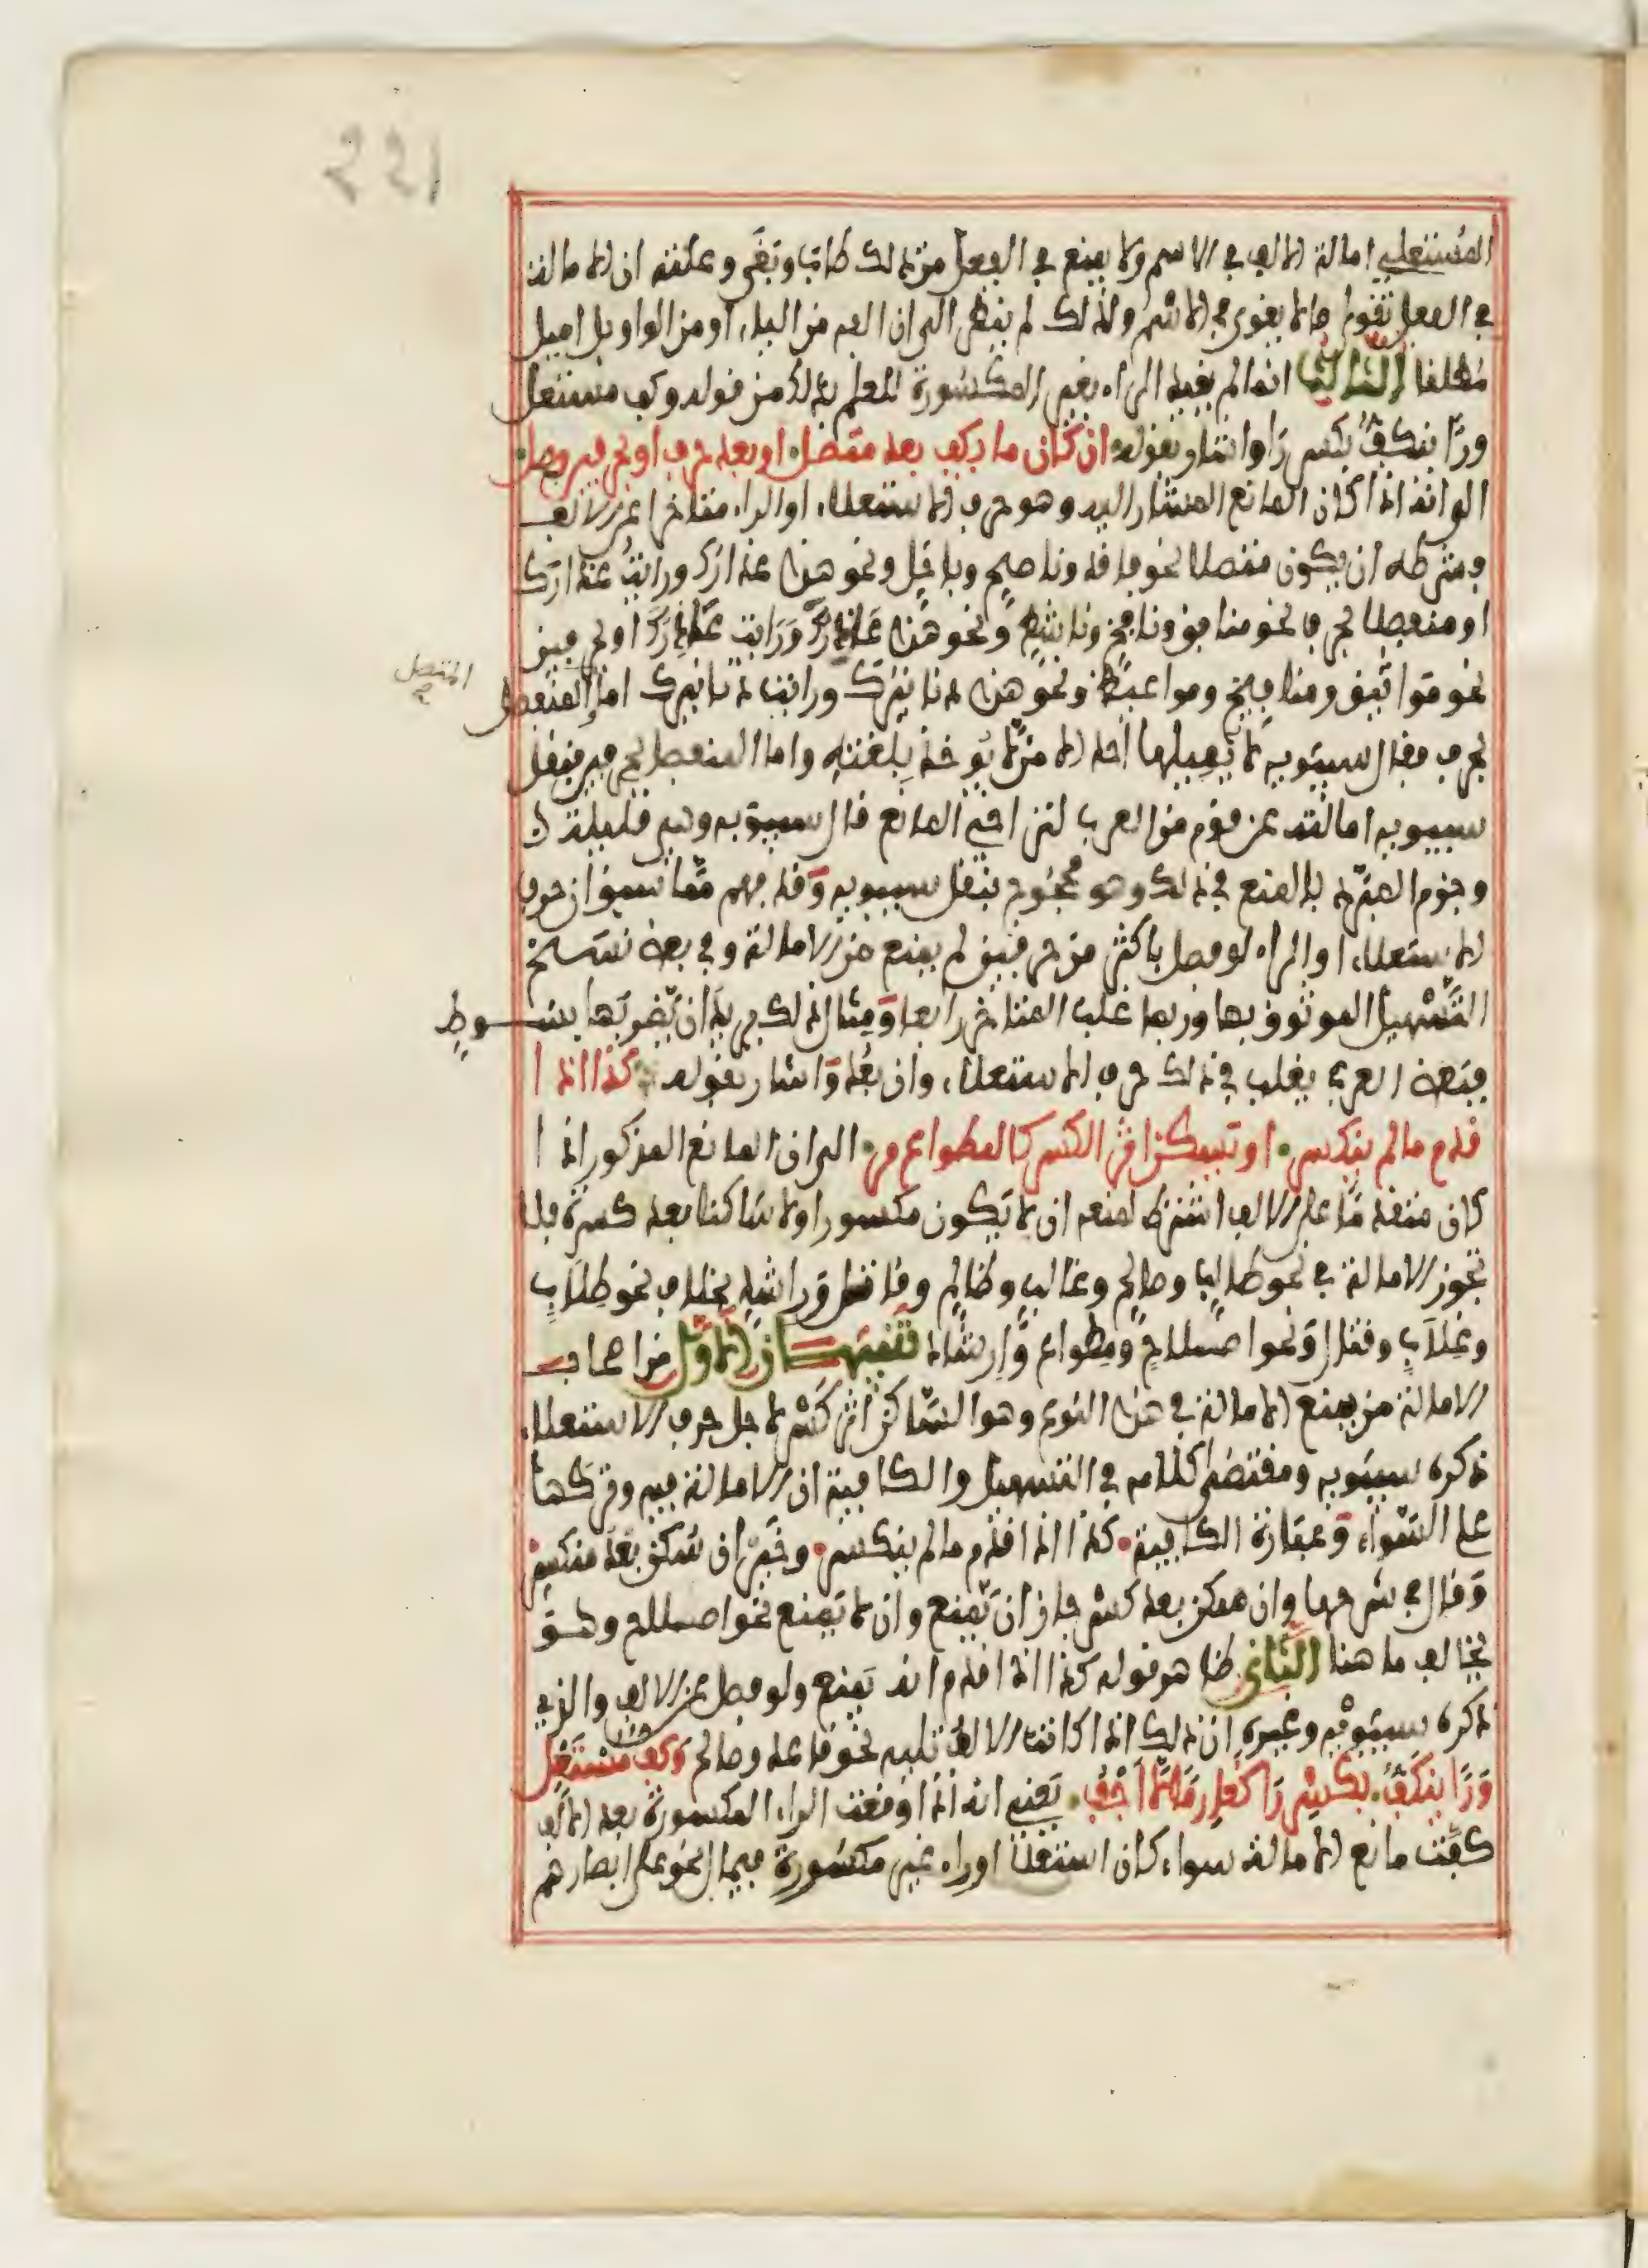 221
المستعلي امالة الالف في الاسم ولا يمنع في الفعل من ذلك طاب وبغى وعلته ان الامالة
في الفعل تقوى ما لا يقوى في الاسم ولذلك لم ينظر الى ان الفه من الياء او من الواو بل اميل
مطلقا الثالث انما لم يقيد الراء بغير المكسورة للعلم بذلك من قوله وكف مستعل
ورا ينكف بكسر را واشار بقوله ان كان ما يكف بعد متصل او بعد حرف او بحرفين فصل
الى انه اذا كان المانع المشار اليه وهو حرف الاستعلاء او الراء متاخرا عن الالف
فشرطه ان يكون متصلا نحو فاقد وناصح وباخل ونحو هذا عذارك ورايت عذارك
او منفصلا بحرف نحو منافق ونافخ وناشط ونحو هذا عاذرك ورايت عاذرك او بحرفين
نحو مواثيق ومنافيخ ومواعيظ ونحو هذه دنانيرك ورايت دنانيرك اما المتصل المنفصل
بحرف فقال سيبويه لا يميلها احد الا من لا يوخذ بلغته واما المنفصل بحرفين فنقل
سيبويه امالته عن قوم من العرب لتراخي المانع قال سيبويه وهي قليلة
وجزم المبرد بالمنع في ذلك وهو محجوج بنقل سيبويه وقد فهم مما سبق ان حرف
الاستعلاء او الراء لو فصل باكثر من حرفين لم يمنع من الامالة وفي بعض نسخ
التسهيل الموثوق بها وربما غلب المتاخر رابعا ومثال ذلك يريد ان يضربها بسوط
فبعض العرب يغلب في ذلك حرف الاستعلاء وان بعد واشار بقوله كذا اذا
قدم ما لم ينكسر او يسكن اثر الكسر كالمطواع مر الى ان المانع المذكور اذا
كان متقدما على الالف اشترط لمنعه ان لا يكون مكسورا ولا ساكنا بعد كسرة فلا
تجوز الامالة في نحو طالب وصالح وغالب وظالم وقاتل وراشد بخلاف نحو طلاب
وغلاب وقتال ونحو اصلاح ومطواع وارشاد تنبيهان الاول من اصحاب
الامالة من يمنع الامالة في هذا النوع وهو الساكن اثر كسر لاجل حرف الاستعلاء
ذكره سيبويه ومقتضى كلامه في التسهيل والكافية ان الامالة فيه وتركها
على السواء وعبارة الكافية كذا اذا قدم ما لم ينكسر وخير ان سكن بعد منكسر
وقال في شرحها وان سكن بعد كسر جاز ان يمنع وان لا يمنع نحو اصلاح وهو
يخالف ما هنا الثاني ظاهر قوله كذا اذا قدم انه يمنع ولو فصل عن الالف والذي
ذكره سيبويه وغيره ان ذلك اذا كانت الالف تليه نحو قاعد وصالح وكف مستعل
ورا ينكف بكسر را كغارما لا اجفو يعني انه اذا وقعت الراء المكسورة بعد الالف
كفت مانع الامالة سواء كان استعلا او راء غير مكسورة فيمال نحو على ابصارهم